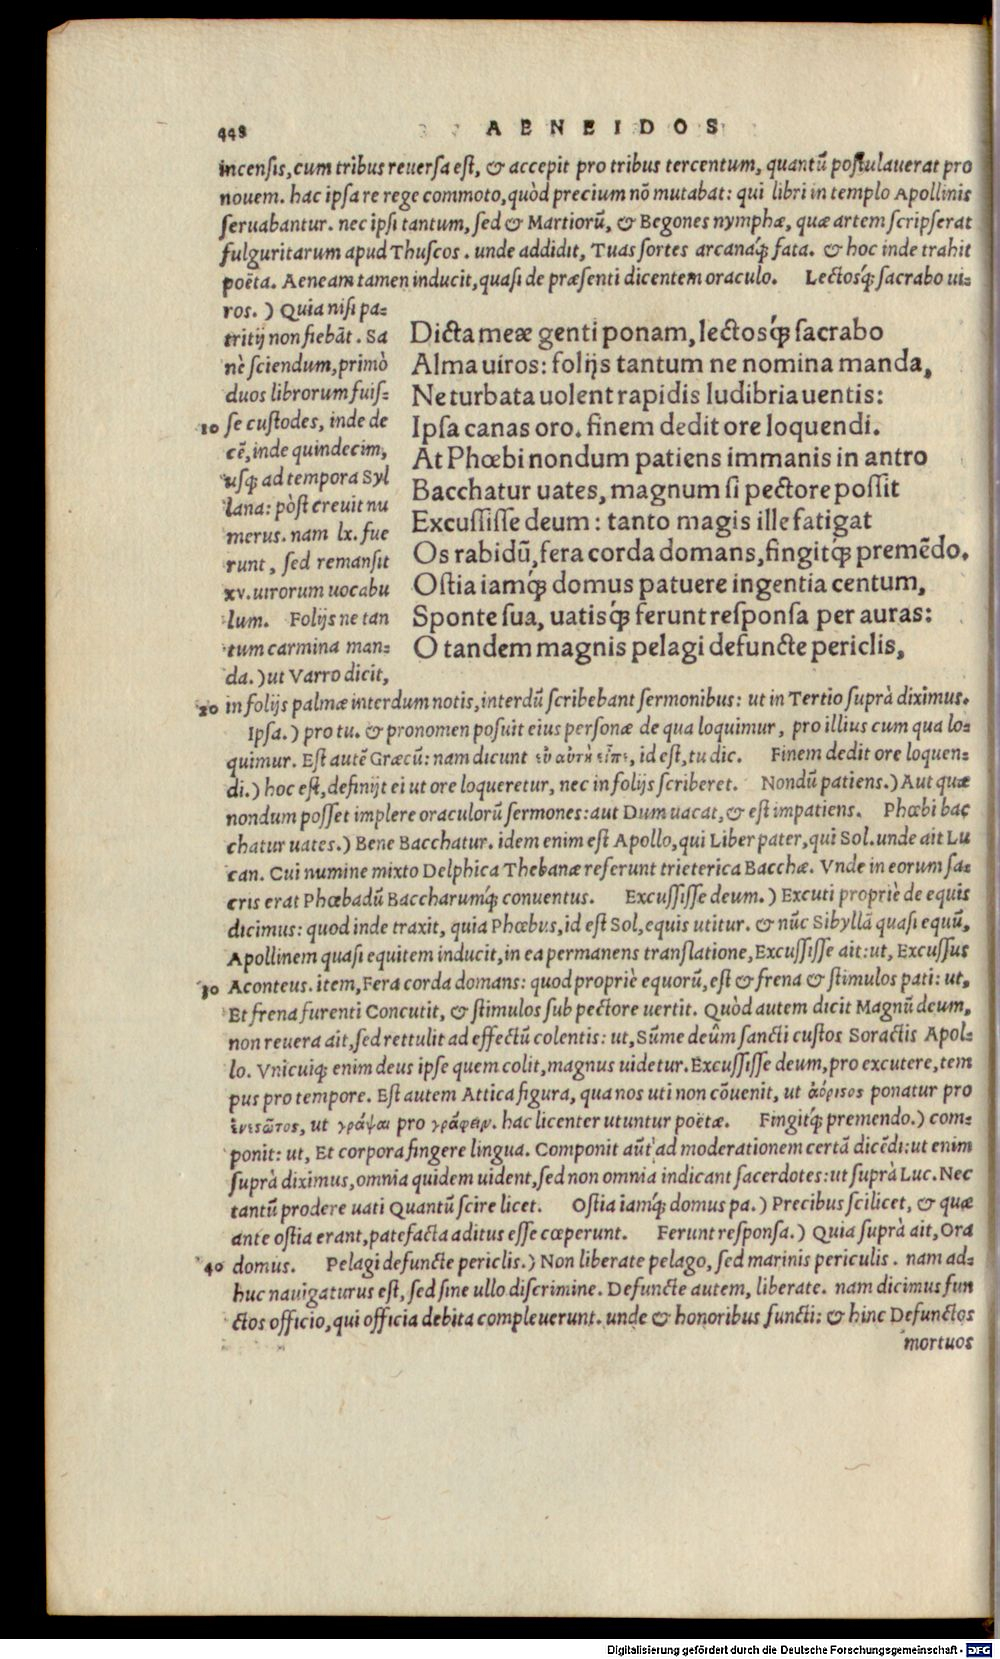 448 AENEIDOS
incensis, cum tribus reuersa est, & accepit pro tribus tercentum, quantũ postulauerat pro
nouem. hac ipsa re rege commoto, quòd precium nõ mutabat: qui libri in templo Apollinis
seruabantur. nec ipsi tantum, sed & Martiorũ, & Begones nymphæ, quæ artem scripserat
fulguritarum apud Thuscos. unde addidit, Tuas sortes arcanaq́ꝫ fata. & hoc inde trahit
poëta. Aeneam tamen inducit, quasi de præsenti dicentem oraculo. Lectosq́ꝫ sacrabo ui-
ros.) Quia nisi pa-
tritij non fiebãt. Sa
nè sciendum, primò
duos librorum fuis-
10 se custodes, inde de
cẽ, inde quindecim,
usqꝫ ad tempora Syl
lana: pòst creuit nu
merus. nam lx. fue
runt, sed remansit
xv. uirorum uocabu
lum. Folijs ne tan
tum carmina man-
da.) ut Varro dicit,
Dicta meæ genti ponam, lectosq́ꝫ sacrabo
Alma uiros: folijs tantum ne nomina manda,
Ne turbata uolent rapidis ludibria uentis:
Ipsa canas oro. finem dedit ore loquendi.
At Phœbi nondum patiens immanis in antro
Bacchatur uates, magnum si pectore possit
Excussisse deum: tanto magis ille fatigat
Os rabidũ, fera corda domans, fingitq́ꝫ premẽdo.
Ostia iamq́ꝫ domus patuere ingentia centum,
Sponte sua, uatisq́ꝫ ferunt responsa per auras:
O tandem magnis pelagi defuncte periclis,
20 in folijs palmæ interdum notis, interdũ scribebant sermonibus: ut in Tertio suprà diximus.
Ipsa.) pro tu. & pronomen posuit eius personæ de qua loquimur, pro illius cum qua lo-
quimur. Est autẽ Græcũ: nam dicunt εὺ αὐτὴ εἶπε, id est, tu dic. Finem dedit ore loquen-
di.) hoc est, definijt ei ut ore loqueretur, nec in folijs scriberet. Nondũ patiens.) Aut quæ
nondum posset implere oraculorũ sermones: aut Dum uacat, & est impatiens. Phœbi bac
chatur uates.) Bene Bacchatur. idem enim est Apollo, qui Liber pater, qui Sol. unde ait Lu
can. Cui numine mixto Delphica Thebanæ referunt trieterica Bacchæ. Vnde in eorum sa-
cris erat Phœbadũ Baccharumq́ꝫ conuentus. Excussisse deum.) Excuti propriè de equis
dicimus: quod inde traxit, quia Phœbus, id est Sol, equis utitur. & nũc Sibyllã quasi equũ,
Apollinem quasi equitem inducit, in ea permanens translatione, Excussisse ait: ut, Excussus
30 Aconteus. item, Fera corda domans: quod propriè equorũ, est & frena & stimulos pati: ut,
Et frena furenti Concutit, & stimulos sub pectore uertit. Quòd autem dicit Magnũ deum,
non reuera ait, sed rettulit ad effectũ colentis: ut, Sũme deûm sancti custos Soractis Apol-
lo. Vnicuiqꝫ enim deus ipse quem colit, magnus uidetur. Excussisse deum, pro excutere, tem
pus pro tempore. Est autem Attica figura, qua nos uti non cõuenit, ut ἀόριστος ponatur pro
ἐνεστῶτος, ut γράψαι pro γράφειν. hac licenter utuntur poëtæ. Fingitq́ꝫ premendo.) com-
ponit: ut, Et corpora fingere lingua. Componit aũt ad moderationem certã dicẽdi: ut enim
suprà diximus, omnia quidem uident, sed non omnia indicant sacerdotes: ut suprà Luc. Nec
tantũ prodere uati Quantũ scire licet. Ostia iamq́ꝫ domus pa.) Precibus scilicet, & quæ
ante ostia erant, patefacta aditus esse cœperunt. Ferunt responsa.) Quia suprà ait, Ora
40 domus. Pelagi defuncte periclis.) Non liberate pelago, sed marinis periculis. nam ad-
huc nauigaturus est, sed sine ullo discrimine. Defuncte autem, liberate. nam dicimus fun
ctos officio, qui officia debita compleuerunt. unde & honoribus functi: & hinc Defunctos
mortuos
Digitalisierung gefördert durch die Deutsche Forschungsgemeinschaft - DFG